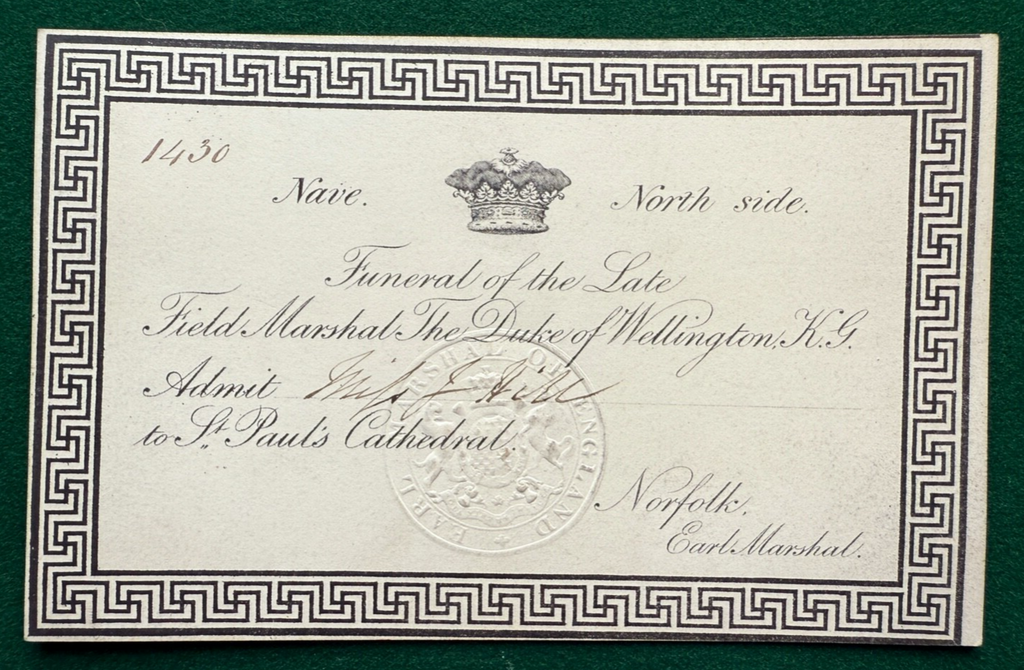 1430
Nave. North side.
Funeral of the Late
Field Marshal The Duke of Wellington, K.G.
Admit Miss J Hill
to St. Paul's Cathedral.
Norfolk.
Earl Marshal.
EARL MARSHAL OF ENGLAND